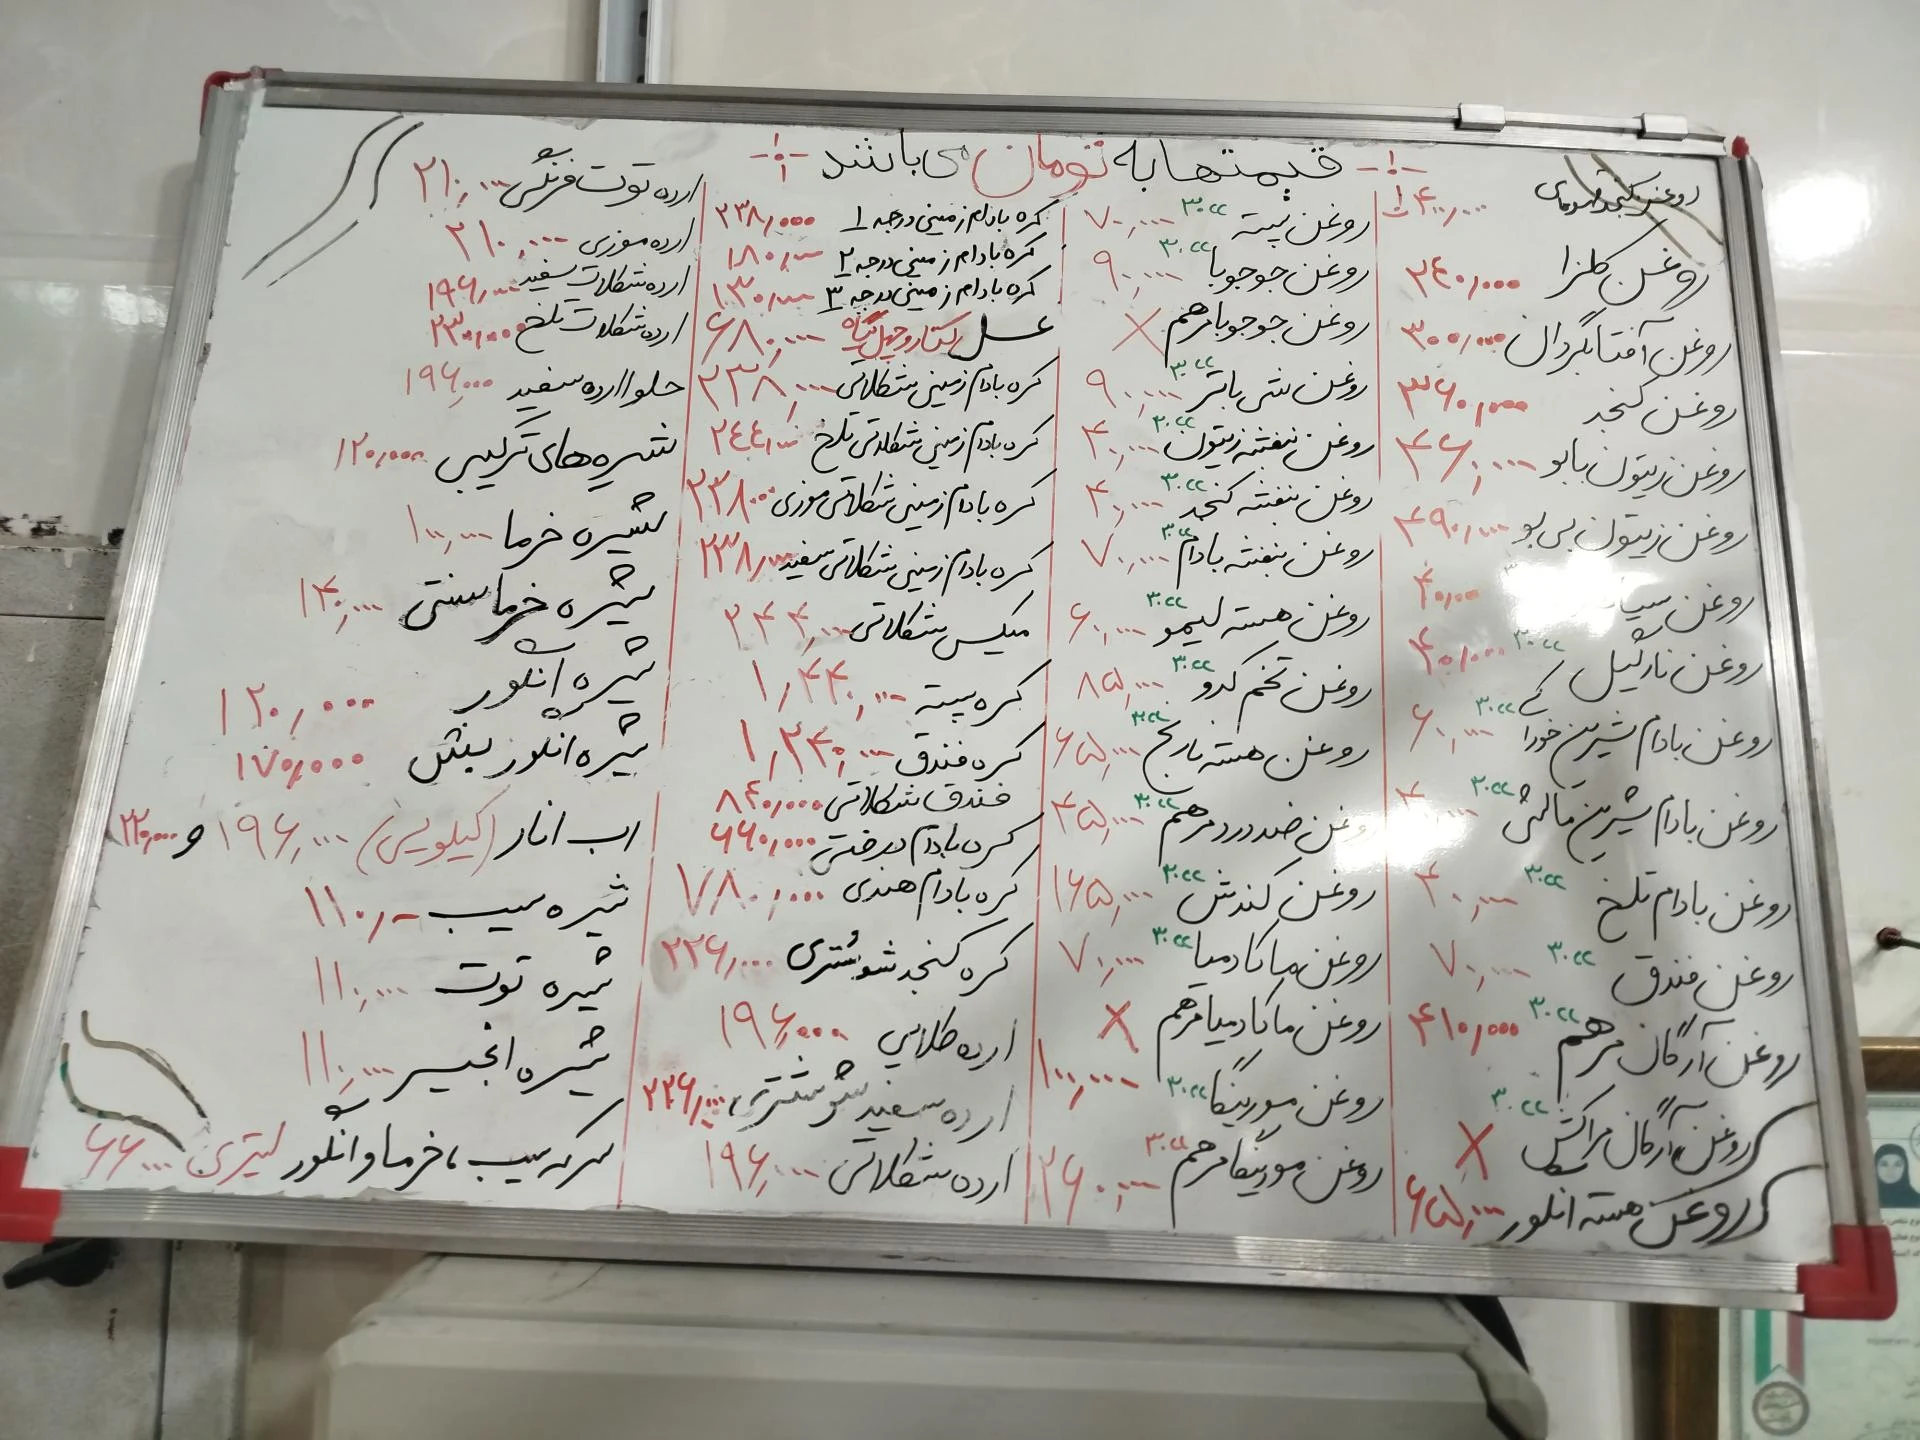 قیمتها به تومان می باشند
روغن کنجد ۴۰۰,۰۰۰
روغن کلزا ۲۴۰,۰۰۰
روغن آفتابگردان ۳۰۰,۰۰۰
روغن کنجد ۳۶۰,۰۰۰
روغن زیتون با بو ۴۶۰,۰۰۰
روغن زیتون بی بو ۴۹۰,۰۰۰
روغن ۴۰,۰۰۰
روغن نارگیل ۳۰cc ۴۰,۰۰۰
روغن بادام شیرین خوراکی ۳۰cc ۶۰,۰۰۰
روغن بادام شیرین مالشی ۳۰cc
روغن بادام تلخ ۳۰cc ۴۰,۰۰۰
روغن فندق ۳۰cc ۷۰,۰۰۰
روغن آرگان مرهم ۳۰cc ۴۱۰,۰۰۰
روغن آرگان مراکش ۳۰cc X
روغن هسته انگور ۶۵,۰۰۰
روغن پسته ۳۰cc ۷۰,۰۰۰
روغن جوجوبا ۳۰cc ۹۰,۰۰۰
روغن جوجوبا مرهم X
روغن شی باتر ۳۰cc ۹۰,۰۰۰
روغن بنفشه زیتون ۳۰cc ۴۰,۰۰۰
روغن بنفشه کنجد ۳۰cc ۴۰,۰۰۰
روغن بنفشه بادام ۳۰cc ۷۰,۰۰۰
روغن هسته لیمو ۳۰cc ۶۰,۰۰۰
روغن تخم کدو ۳۰cc ۸۵,۰۰۰
روغن هسته نارنج ۳۰cc ۶۵,۰۰۰
روغن ضد درد مرهم ۳۰cc ۴۵,۰۰۰
روغن کندش ۳۰cc ۱۶۵,۰۰۰
روغن ماکادمیا ۳۰cc ۷۰,۰۰۰
روغن ماکادمیا مرهم X
روغن مورینگا ۳۰cc ۱۰۰,۰۰۰
روغن مورینگا مرهم ۳۰cc ۲۶۰,۰۰۰
کره بادام زمینی درجه ۱ ۲۳۸,۰۰۰
کره بادام زمینی درجه ۲ ۱۸۰,۰۰۰
کره بادام زمینی درجه ۳ ۱۳۰,۰۰۰
عسل کنار و چهل گیاه ۶۸۰,۰۰۰
کره بادام زمینی شکلاتی ۲۳۸,۰۰۰
کره بادام زمینی شکلاتی تلخ ۲۴۴,۰۰۰
کره بادام زمینی شکلاتی موزی ۲۳۸,۰۰۰
کره بادام زمینی شکلاتی سفید ۲۳۸,۰۰۰
میکس شکلاتی ۲۴۴,۰۰۰
کره پسته ۱,۴۴۰,۰۰۰
کره فندق ۱,۲۴۰,۰۰۰
فندق شکلاتی ۸۴۰,۰۰۰
کره بادام درختی ۶۶۰,۰۰۰
کره بادام هندی ۷۸۰,۰۰۰
کره کنجد شوشتری ۲۲۶,۰۰۰
ارده طلایی ۱۹۶,۰۰۰
ارده سفید شوشتری ۲۲۶,۰۰۰
ارده شکلاتی ۱۹۶,۰۰۰
ارده توت فرنگی ۲۱۰,۰۰۰
ارده موزی ۲۱۰,۰۰۰
ارده شکلات سفید ۱۹۶,۰۰۰
ارده شکلات تلخ ۲۳۰,۰۰۰
حلوا ارده سفید ۱۹۶,۰۰۰
شیره های ترکیبی ۱۲۰,۰۰۰
شیره خرما ۱۰۰,۰۰۰
شیره خرما سنتی ۱۴۰,۰۰۰
شیره انگور ۱۲۰,۰۰۰
شیره انگور بنش ۱۷۰,۰۰۰
اب انار (کیلویی) ۱۹۶,۰۰۰ و ۲۲۰,۰۰۰
شیره سیب ۱۱۰,۰۰۰
شیره توت ۱۱۰,۰۰۰
شیره انجیر ۱۱۰,۰۰۰
سرکه سیب ، خرما و انگور لیتری ۶۶۰۰۰